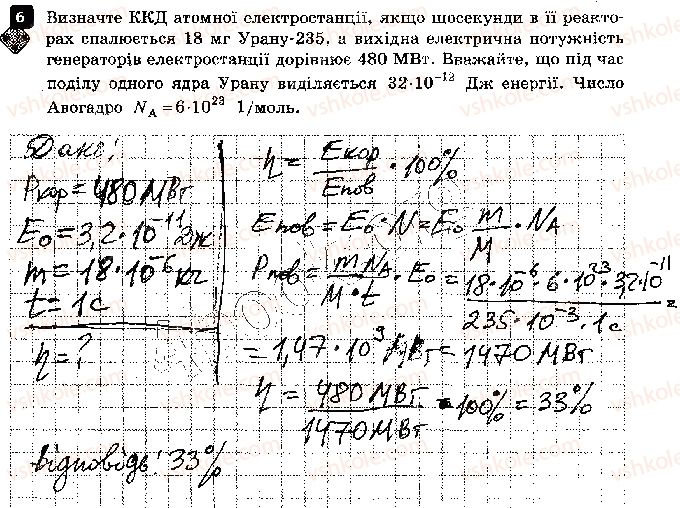 6 Визначте ККД атомної електростанції, якщо щосекунди в її реакто-
рах спалюється 18 мг Урану-235, а вихідна електрична потужність
генераторів електростанції дорівнює 480 МВт. Вважайте, що під час
поділу одного ядра Урану виділяється 32·10⁻¹² Дж енергії. Число
Авогадро N_A = 6·10²³ 1/моль.
Дано:
P кор = 480 МВт
E₀ = 3,2·10⁻¹¹ Дж
m = 18·10⁻⁶ кг
t = 1с
η = ?
η = Eкор / Eпов · 100%
Eпов = E₀·N = E₀ m/M · N_A
Pпов = m N_A / M·t · E₀ = 18·10⁻⁶·6·10²³·3,2·10⁻¹¹ / 235·10⁻³·1с =
= 1,47·10⁹ МВт = 1470 МВт
η = 480 МВт / 1470 МВт = 100% = 33%
Відповідь: 33%